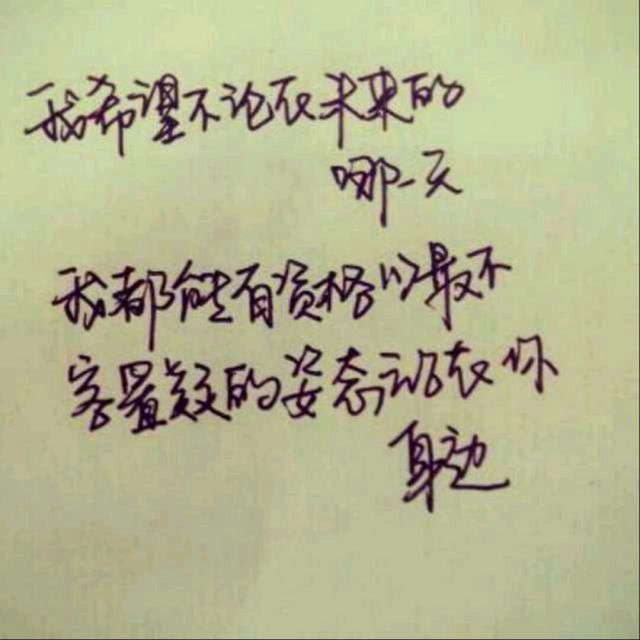 我希望不论在未来的
哪一天
我都能有资格以最不
容置疑的姿态站在你
身边